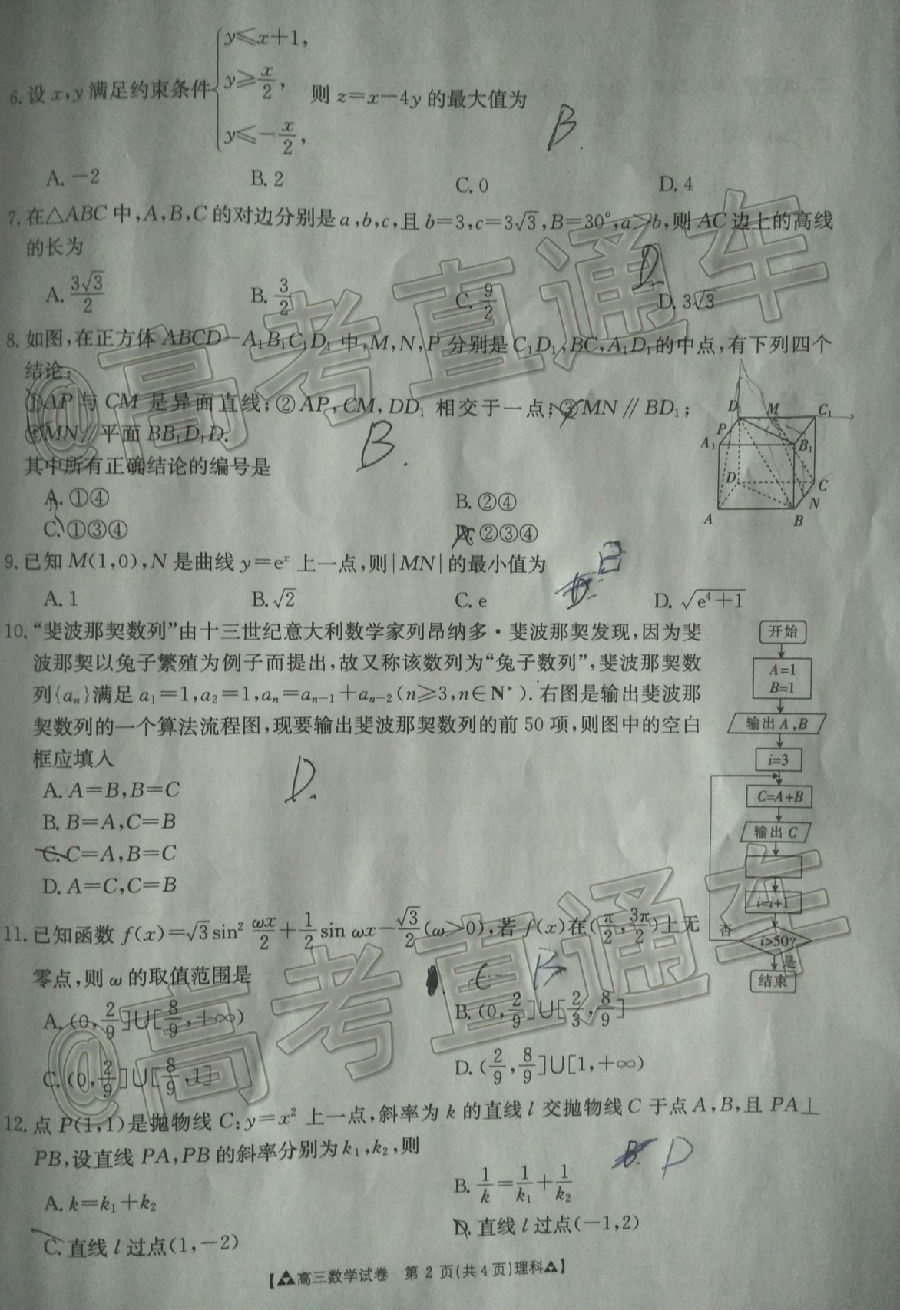 6.设x,y满足约束条件{y≤x+1, y≥x/2, y≤-x/2, 则z=x-4y的最大值为
B.
A. -2 B. 2 C. 0 D. 4
7.在△ABC中,A,B,C的对边分别是a,b,c,且b=3,c=3√3,B=30°,a>b,则AC边上的高线
的长为
D
A. 3√3/2 B. 3/2 C. 9/2 D. 3√3
8.如图,在正方体ABCD-A₁B₁C₁D₁中,M,N,P分别是C₁D₁,BC,A₁D₁的中点,有下列四个
结论:
①AP与CM是异面直线;②AP,CM,DD₁相交于一点;③MN∥BD₁;
④MN∥平面BB₁D₁D.
其中所有正确结论的编号是
B.
A. ①④ B. ②④
C. ①③④ D. ②③④
D₁ M C₁
P
A₁ B₁
D C
N
A B
9.已知M(1,0),N是曲线y=eˣ上一点,则|MN|的最小值为
B
A. 1 B. √2 C. e D. √(e⁴+1)
10.“斐波那契数列”由十三世纪意大利数学家列昂纳多·斐波那契发现,因为斐
波那契以兔子繁殖为例子而提出,故又称该数列为“兔子数列”,斐波那契数
列{aₙ}满足a₁=1,a₂=1,aₙ=aₙ₋₁+aₙ₋₂(n≥3,n∈N*).右图是输出斐波那
契数列的一个算法流程图,现要输出斐波那契数列的前50项,则图中的空白
框应填入
D.
A. A=B,B=C
B. B=A,C=B
C. C=A,B=C
D. A=C,C=B
开始
A=1
B=1
输出A,B
i=3
C=A+B
输出C
i=i+1
否
i>50?
是
结束
11.已知函数f(x)=√3sin²(ωx/2)+1/2 sin ωx-√3/2(ω>0),若f(x)在(π/2,3π/2)上无
零点,则ω的取值范围是
C B
A. (0,2/9]∪[8/9,+∞) B. (0,2/9]∪[2/3,8/9]
C. (0,2/9]∪[8/9,1] D. (2/9,8/9]∪[1,+∞)
12.点P(1,1)是抛物线C:y=x²上一点,斜率为k的直线l交抛物线C于点A,B,且PA⊥
PB,设直线PA,PB的斜率分别为k₁,k₂,则
B. D
A. k=k₁+k₂ B. 1/k=1/k₁+1/k₂
C. 直线l过点(1,-2) D. 直线l过点(-1,2)
【高三数学试卷 第2页(共4页)理科】
@高考直通车
@高考直通车